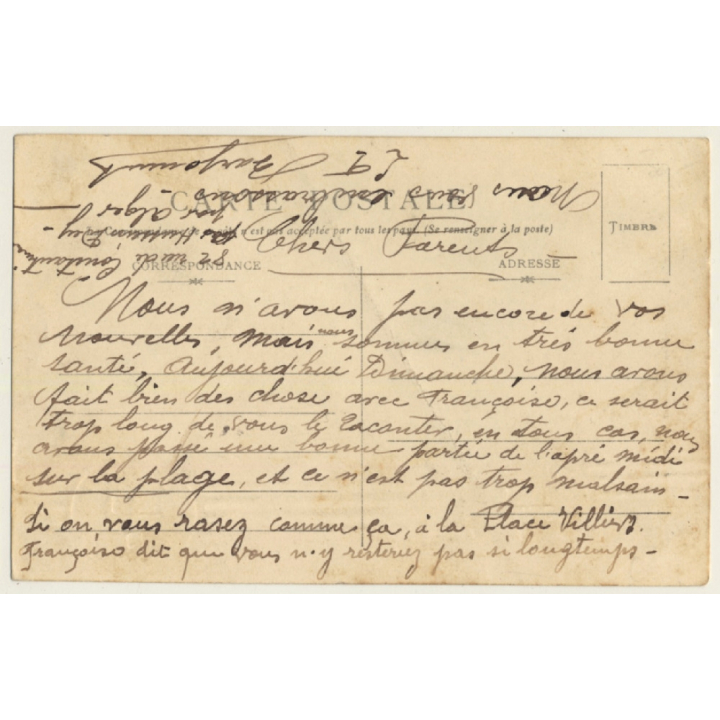 CARTE POSTALE
n'est pas acceptée par tous les pays. (Se renseigner à la poste)
TIMBRE
CORRESPONDANCE
ADRESSE
Chers Parents
Nous n'avons pas encore de vos
nouvelles, mais nous sommes en très bonne
santé, Aujourd'hui Dimanche, nous avons
fait bien des chose avec Françoise, ce serait
trop long de vous le raconter, en tous cas, nous
avons passé une bonne partie de l'apré midi
sur la plage, et ce n'est pas trop malsain -
Si on vous rasez comme ça, à la Place Villiers.
Françoise dit que vous n'y resteriez pas si longtemps -
Nous vous embrassons
82 rue de Constantine
Hussein Dey
près Alger